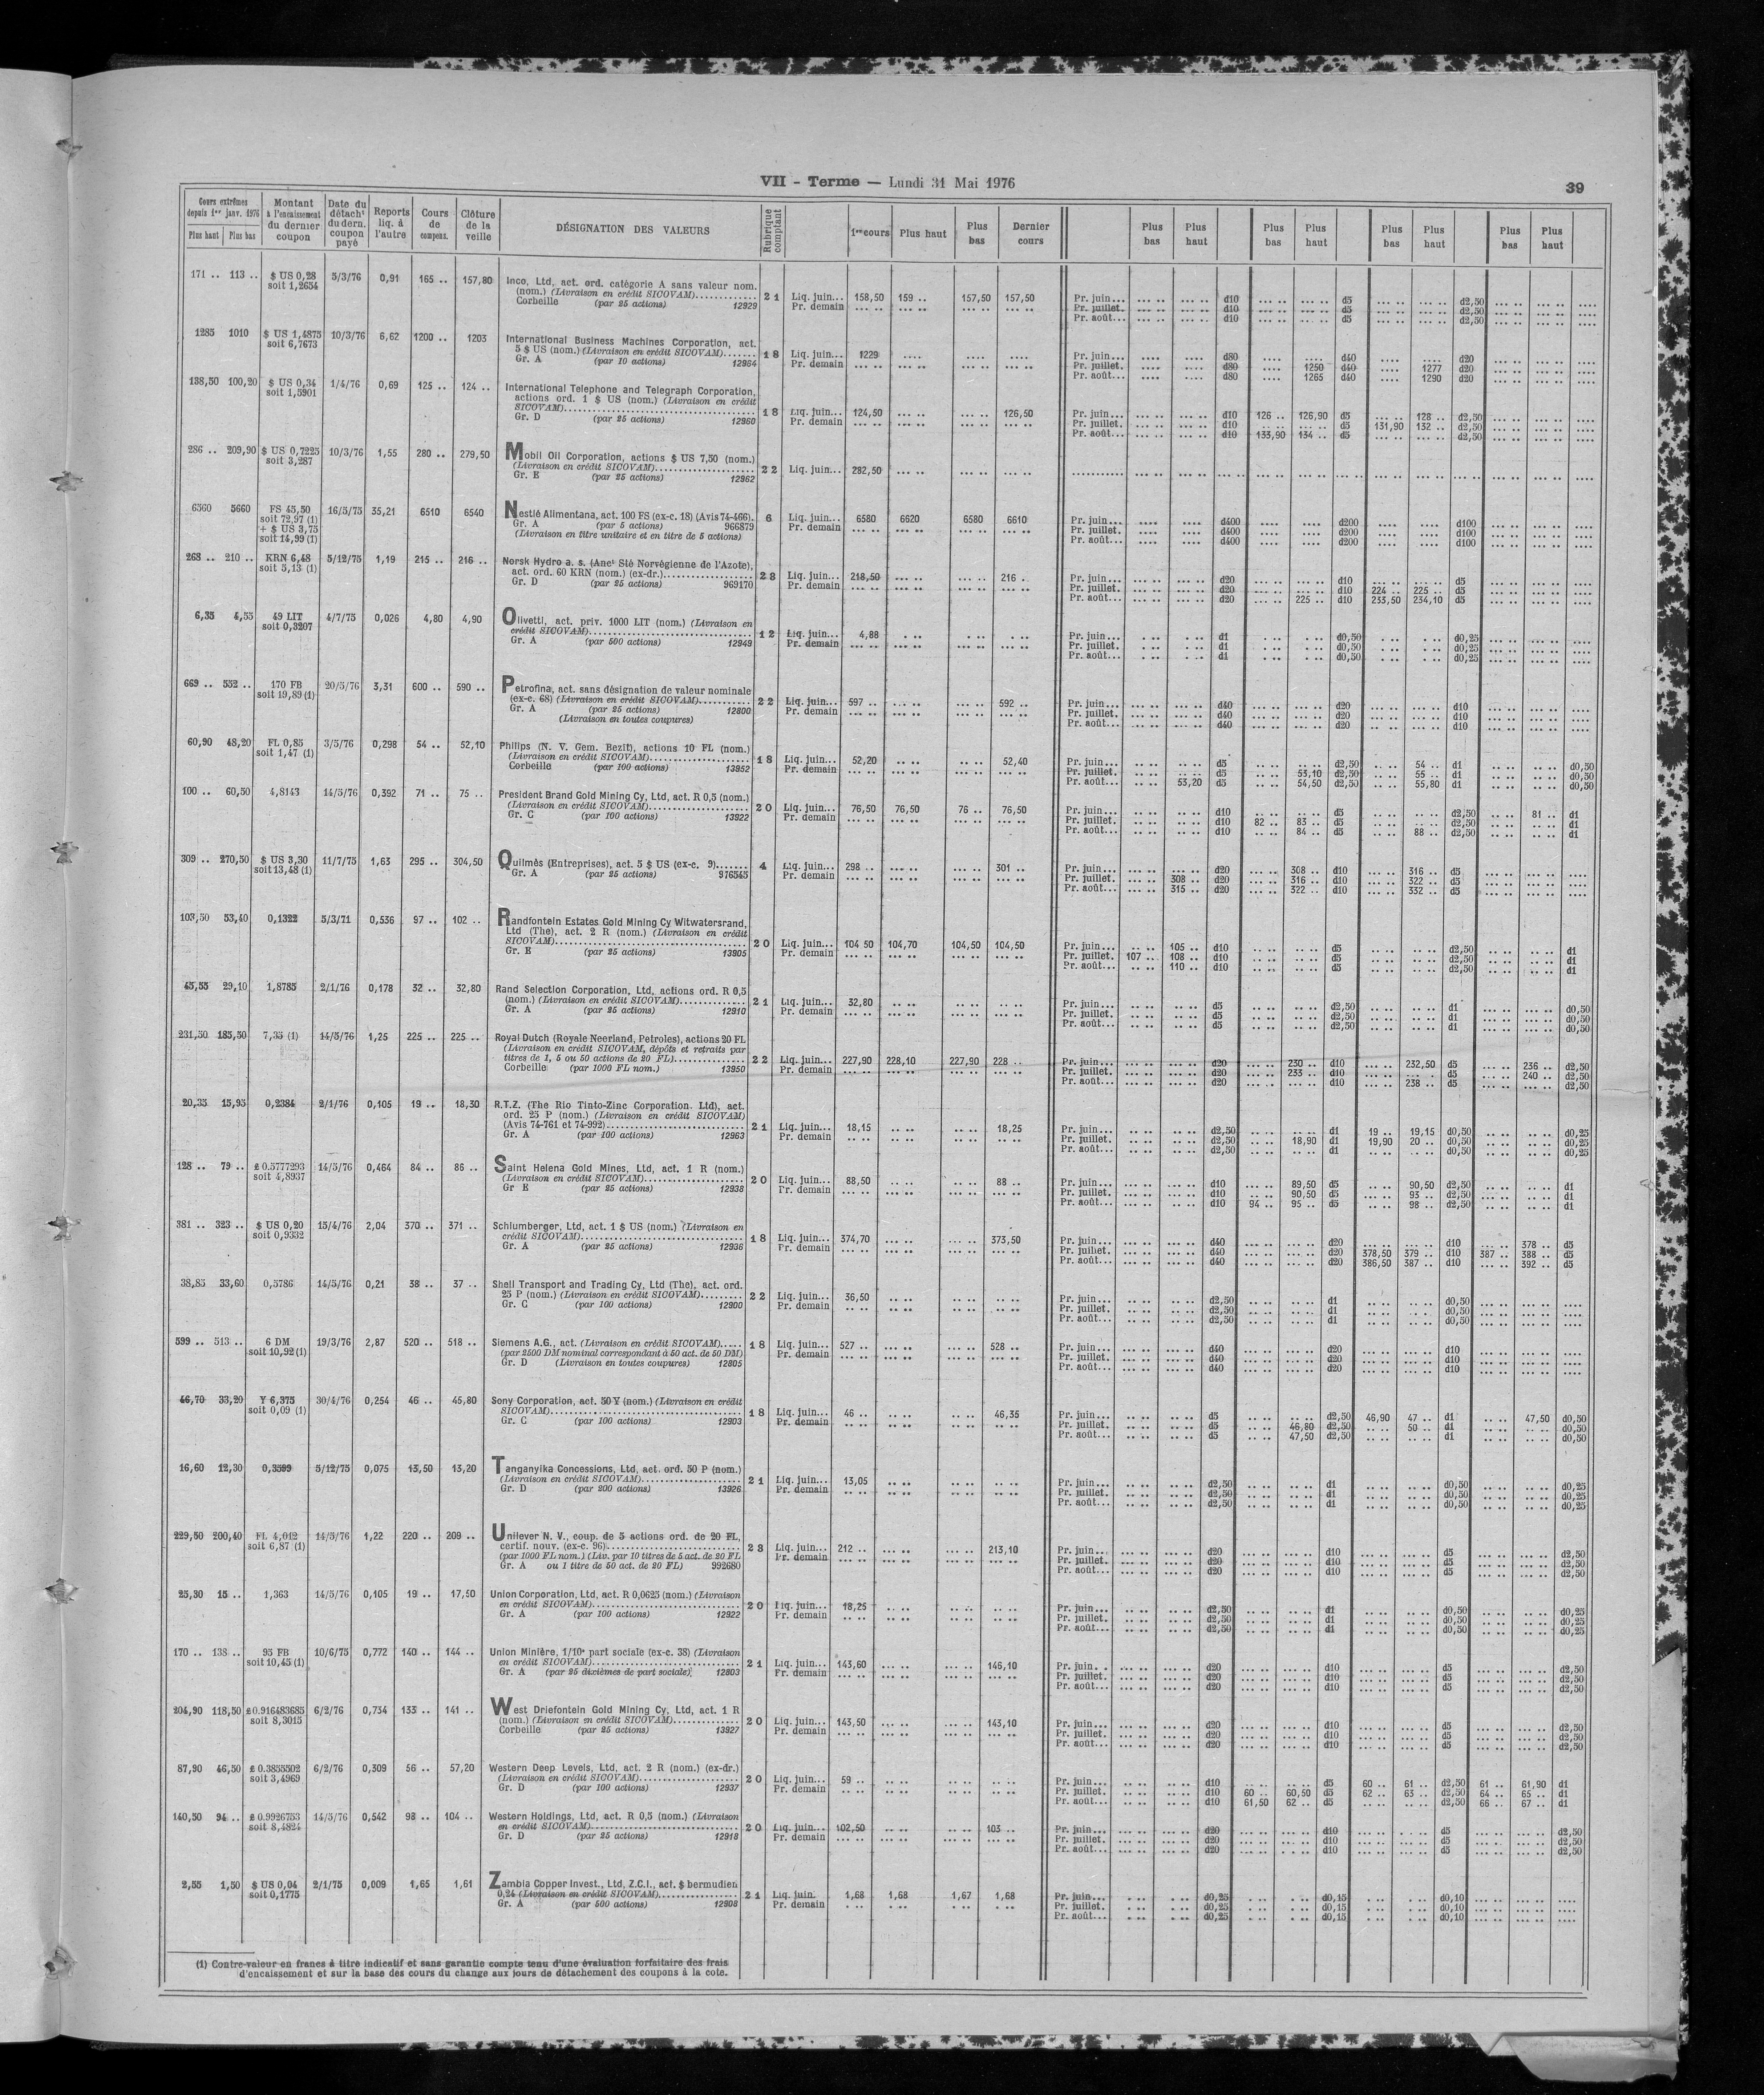 VII - Terme — Lundi 31 Mai 1976
39
Cours extrêmes depuis 1er janv. 1976 Plus haut Plus bas
Montant à l'encaissement du dernier coupon
Date du détacht du dern. coupon payé
Reports liq. à l'autre
Cours de compens.
Clôture de la veille
DÉSIGNATION DES VALEURS
Rubrique comptant
1er cours Plus haut Plus bas Dernier cours
Plus bas Plus haut Plus bas Plus haut Plus bas Plus haut Plus bas Plus haut
171 .. 113 .. $ US 0,28 5/3/76 0,91 165 .. 157,80 Inco, Ltd, act. ord. catégorie A sans valeur nom.
soit 1,2654 (nom.) (Livraison en crédit SICOVAM) 21 Liq. juin... 158,50 159 .. 157,50 157,50 Pr. juin... d10 d5 d2,50
Corbeille (par 25 actions) 12929 Pr. demain Pr. juillet. d10 d5 d2,50
Pr. août... d10 d5 d2,50
1285 1010 $ US 1,4875 10/3/76 6,62 1200 .. 1203 International Business Machines Corporation, act.
soit 6,7673 5 $ US (nom.) (Livraison en crédit SICOVAM) 18 Liq. juin... 1229 Pr. juin... d80 d40 d20
Gr. A (par 10 actions) 12964 Pr. demain Pr. juillet. d80 1250 d40 1277 d20
Pr. août... d80 1265 d40 1290 d20
138,50 100,20 $ US 0,34 1/4/76 0,69 125 .. 124 .. International Telephone and Telegraph Corporation,
soit 1,5901 actions ord. 1 $ US (nom.) (Livraison en crédit
SICOVAM) 18 Liq. juin... 124,50 126,50 Pr. juin... d10 126 .. 126,90 d5 128 .. d2,50
Gr. D (par 25 actions) 12960 Pr. demain Pr. juillet. d10 d5 131,90 132 .. d2,50
Pr. août... d10 133,90 134 .. d5 d2,50
286 .. 209,90 $ US 0,7225 10/3/76 1,55 280 .. 279,50 Mobil Oil Corporation, actions $ US 7,50 (nom.)
soit 3,287 (Livraison en crédit SICOVAM) 22 Liq. juin... 282,50
Gr. E (par 25 actions) 12962
6560 5660 FS 45,50 16/5/75 35,21 6510 6540 Nestlé Alimentana, act. 100 FS (ex-c. 18) (Avis 74-466). 6 Liq. juin... 6580 6620 6580 6610 Pr. juin... d400 d200 d100
soit 72,97 (1) Gr. A (par 5 actions) 966879 Pr. demain Pr. juillet. d400 d200 d100
+ $ US 3,75 (Livraison en titre unitaire et en titre de 5 actions) Pr. août... d400 d200 d100
soit 14,99 (1)
268 .. 210 .. KRN 6,48 5/12/75 1,19 215 .. 216 .. Norsk Hydro a. s. (Anct Sté Norvégienne de l'Azote),
soit 5,13 (1) act. ord. 60 KRN (nom.) (ex-dr.) 28 Liq. juin... 218,50 216 .. Pr. juin... d20 d10 d5
Gr. D (par 25 actions) 969170 Pr. demain Pr. juillet. d20 d10 224 .. 225 .. d5
Pr. août... d20 225 .. d10 233,50 234,10 d5
6,35 4,55 49 LIT 4/7/75 0,026 4,80 4,90 Olivetti, act. priv. 1000 LIT (nom.) (Livraison en
soit 0,3207 crédit SICOVAM) 12 Liq. juin... 4,88 Pr. juin... d1 d0,50 d0,25
Gr. A (par 500 actions) 12949 Pr. demain Pr. juillet. d1 d0,50 d0,25
Pr. août... d1 d0,50 d0,25
669 .. 552 .. 170 FB 20/5/76 3,31 600 .. 590 .. Petrofina, act. sans désignation de valeur nominale
soit 19,89 (1) (ex-c. 68) (Livraison en crédit SICOVAM) 22 Liq. juin... 597 .. 592 .. Pr. juin... d40 d20 d10
Gr. A (par 25 actions) 12800 Pr. demain Pr. juillet. d40 d20 d10
(Livraison en toutes coupures) Pr. août... d40 d20 d10
60,90 48,20 FL 0,85 3/5/76 0,298 54 .. 52,10 Philips (N. V. Gem. Bezit), actions 10 FL (nom.)
soit 1,47 (1) (Livraison en crédit SICOVAM) 18 Liq. juin... 52,20 52,40 Pr. juin... d5 d2,50 54 .. d1 d0,50
Corbeille (par 100 actions) 13952 Pr. demain Pr. juillet. d5 53,10 d2,50 55 .. d1 d0,50
Pr. août... 53,20 d5 54,50 d2,50 55,80 d1 d0,50
100 .. 60,50 4,8143 14/5/76 0,392 71 .. 75 .. President Brand Gold Mining Cy, Ltd, act. R 0,5 (nom.)
(Livraison en crédit SICOVAM) 20 Liq. juin... 76,50 76,50 76 .. 76,50 Pr. juin... d10 d5 d2,50 81 .. d1
Gr. C (par 100 actions) 13922 Pr. demain Pr. juillet. d10 82 .. 83 .. d5 d2,50 d1
Pr. août... d10 84 .. d5 88 .. d2,50 d1
309 .. 270,50 $ US 3,30 11/7/75 1,63 295 .. 304,50 Quilmès (Entreprises), act. 5 $ US (ex-c. 9) 4 Liq. juin... 298 .. 301 .. Pr. juin... d20 308 .. d10 316 .. d5
soit 13,48 (1) Gr. A (par 25 actions) 976545 Pr. demain Pr. juillet. 308 .. d20 316 .. d10 322 .. d5
Pr. août... 315 .. d20 322 .. d10 332 .. d5
103,50 53,40 0,1322 5/3/71 0,536 97 .. 102 .. Randfontein Estates Gold Mining Cy Witwatersrand,
Ltd (The), act. 2 R (nom.) (Livraison en crédit
SICOVAM) 20 Liq. juin... 104 50 104,70 104,50 104,50 Pr. juin... 105 .. d10 d5 d2,50 d1
Gr. E (par 25 actions) 13905 Pr. demain Pr. juillet. 107 .. 108 .. d10 d5 d2,50 d1
Pr. août... 110 .. d10 d5 d2,50 d1
45,55 29,10 1,8785 2/1/76 0,178 32 .. 32,80 Rand Selection Corporation, Ltd, actions ord. R 0,5
(nom.) (Livraison en crédit SICOVAM) 21 Liq. juin... 32,80 Pr. juin... d5 d2,50 d1 d0,50
Gr. A (par 25 actions) 12910 Pr. demain Pr. juillet. d5 d2,50 d1 d0,50
Pr. août... d5 d2,50 d1 d0,50
231,50 185,50 7,35 (1) 14/5/76 1,25 225 .. 225 .. Royal Dutch (Royale Neerland, Petroles), actions 20 FL
(Livraison en crédit SICOVAM, dépôts et retraits par
titres de 1, 5 ou 50 actions de 20 FL) 22 Liq. juin... 227,90 228,10 227,90 228 .. Pr. juin... d20 230 .. d10 232,50 d5 236 .. d2,50
Corbeille (par 1000 FL nom.) 13950 Pr. demain Pr. juillet. d20 233 .. d10 d5 240 .. d2,50
Pr. août... d20 d10 238 .. d5 d2,50
20,35 15,95 0,2384 2/1/76 0,105 19 .. 18,30 R.T.Z. (The Rio Tinto-Zinc Corporation. Ltd), act.
ord. 25 P (nom.) (Livraison en crédit SICOVAM)
(Avis 74-761 et 74-992) 21 Liq. juin... 18,15 18,25 Pr. juin... d2,50 d1 19 .. 19,15 d0,50 d0,25
Gr. A (par 100 actions) 12963 Pr. demain Pr. juillet. d2,50 18,90 d1 19,90 20 .. d0,50 d0,25
Pr. août... d2,50 d1 d0,50 d0,25
128 .. 79 .. £ 0.5777293 14/5/76 0,464 84 .. 86 .. Saint Helena Gold Mines, Ltd, act. 1 R (nom.)
soit 4,8937 (Livraison en crédit SICOVAM) 20 Liq. juin... 88,50 88 .. Pr. juin... d10 89,50 d5 90,50 d2,50 d1
Gr E (par 25 actions) 12938 Pr. demain Pr. juillet. d10 90,50 d5 93 .. d2,50 d1
Pr. août... d10 94 .. 95 .. d5 98 .. d2,50 d1
381 .. 323 .. $ US 0,20 15/4/76 2,04 370 .. 371 .. Schlumberger, Ltd, act. 1 $ US (nom.) (Livraison en
soit 0,9332 crédit SICOVAM) 18 Liq. juin... 374,70 373,50 Pr. juin... d40 d20 d10 378 .. d5
Gr. A (par 25 actions) 12936 Pr. demain Pr. juillet. d40 d20 378,50 379 .. d10 387 .. 388 .. d5
Pr. août... d40 d20 386,50 387 .. d10 392 .. d5
38,85 33,60 0,5786 14/5/76 0,21 38 .. 37 .. Shell Transport and Trading Cy, Ltd (The), act. ord.
25 P (nom.) (Livraison en crédit SICOVAM) 22 Liq. juin... 36,50 Pr. juin... d2,50 d1 d0,50
Gr. C (par 100 actions) 12900 Pr. demain Pr. juillet. d2,50 d1 d0,50
Pr. août... d2,50 d1 d0,50
599 .. 513 .. 6 DM 19/3/76 2,87 520 .. 518 .. Siemens A.G., act. (Livraison en crédit SICOVAM) 18 Liq. juin... 527 .. 528 .. Pr. juin... d40 d20 d10
soit 10,92 (1) (par 2500 DM nominal correspondant à 50 act. de 50 DM) Pr. demain Pr. juillet. d40 d20 d10
Gr. D (Livraison en toutes coupures) 12805 Pr. août... d40 d20 d10
46,70 33,20 Y 6,375 30/4/76 0,254 46 .. 45,80 Sony Corporation, act. 50 Y (nom.) (Livraison en crédit
soit 0,09 (1) SICOVAM) 18 Liq. juin... 46 .. 46,35 Pr. juin... d5 d2,50 46,90 47 .. d1 47,50 d0,50
Gr. C (par 100 actions) 12903 Pr. demain Pr. juillet. d5 46,80 d2,50 50 .. d1 d0,50
Pr. août... d5 47,50 d2,50 d1 d0,50
16,60 12,30 0,3599 5/12/75 0,075 13,50 13,20 Tanganyika Concessions, Ltd, act. ord. 50 P (nom.)
(Livraison en crédit SICOVAM) 21 Liq. juin... 13,05 Pr. juin... d2,50 d1 d0,50 d0,25
Gr. D (par 200 actions) 13926 Pr. demain Pr. juillet. d2,50 d1 d0,50 d0,25
Pr. août... d2,50 d1 d0,50 d0,25
229,50 200,40 FL 4,012 14/5/76 1,22 220 .. 209 .. Unilever N. V., coup. de 5 actions ord. de 20 FL,
soit 6,87 (1) certif. nouv. (ex-c. 96) 23 Liq. juin... 212 .. 213,10 Pr. juin... d20 d10 d5 d2,50
(par 1000 FL nom.) (Liv. par 10 titres de 5 act. de 20 FL Pr. demain Pr. juillet. d20 d10 d5 d2,50
Gr. A ou 1 titre de 50 act. de 20 FL) 992680 Pr. août... d20 d10 d5 d2,50
25,30 15 .. 1,363 14/5/76 0,105 19 .. 17,50 Union Corporation, Ltd, act. R 0,0625 (nom.) (Livraison
en crédit SICOVAM) 20 Liq. juin... 18,25 Pr. juin... d2,50 d1 d0,50 d0,25
Gr. A (par 100 actions) 12922 Pr. demain Pr. juillet. d2,50 d1 d0,50 d0,25
Pr. août... d2,50 d1 d0,50 d0,25
170 .. 138 .. 95 FB 10/6/75 0,772 140 .. 144 .. Union Minière, 1/10e part sociale (ex-c. 38) (Livraison
soit 10,45 (1) en crédit SICOVAM) 21 Liq. juin... 143,60 146,10 Pr. juin. . d20 d10 d5 d2,50
Gr. A (par 25 dixièmes de part sociale) 12803 Pr. demain Pr. juillet. d20 d10 d5 d2,50
Pr. août... d20 d10 d5 d2,50
204,90 118,50 £ 0.916483685 6/2/76 0,734 133 .. 141 .. West Driefontein Gold Mining Cy, Ltd, act. 1 R
soit 8,3015 (nom.) (Livraison en crédit SICOVAM) 20 Liq. juin... 143,50 143,10 Pr. juin... d20 d10 d5 d2,50
Corbeille (par 25 actions) 13927 Pr. demain Pr. juillet. d20 d10 d5 d2,50
Pr. août... d20 d10 d5 d2,50
87,90 46,50 £ 0.3855502 6/2/76 0,309 56 .. 57,20 Western Deep Levels, Ltd, act. 2 R (nom.) (ex-dr.)
soit 3,4969 (Livraison en crédit SICOVAM) 20 Liq. juin... 59 .. Pr. juin... d10 d5 60 .. 61 .. d2,50 61 .. 61,90 d1
Gr. D (par 100 actions) 12937 Pr. demain Pr. juillet. d10 60 .. 60,50 d5 62 .. 63 .. d2,50 64 .. 65 .. d1
Pr. août... d10 61,50 62 .. d5 d2,50 66 .. 67 .. d1
140,50 94 .. £ 0.9926753 14/5/76 0,542 98 .. 104 .. Western Holdings, Ltd, act. R 0,5 (nom.) (Livraison
soit 8,4824 en crédit SICOVAM) 20 Liq. juin... 102,50 103 .. Pr. juin... d20 d10 d5 d2,50
Gr. D (par 25 actions) 12918 Pr. demain Pr. juillet. d20 d10 d5 d2,50
Pr. août... d20 d10 d5 d2,50
2,55 1,50 $ US 0,04 2/1/75 0,009 1,65 1,61 Zambia Copper Invest., Ltd, Z.C.I., act. $ bermudien
soit 0,1775 0,24 (Livraison en crédit SICOVAM) 21 Liq. juin. 1,68 1,68 1,67 1,68 Pr. juin... d0,25 d0,15 d0,10
Gr. A (par 500 actions) 12908 Pr. demain Pr. juillet. d0,25 d0,15 d0,10
Pr. août... d0,25 d0,15 d0,10
(1) Contre-valeur en francs à titre indicatif et sans garantie compte tenu d'une évaluation forfaitaire des frais
d'encaissement et sur la base des cours du change aux jours de détachement des coupons à la cote.